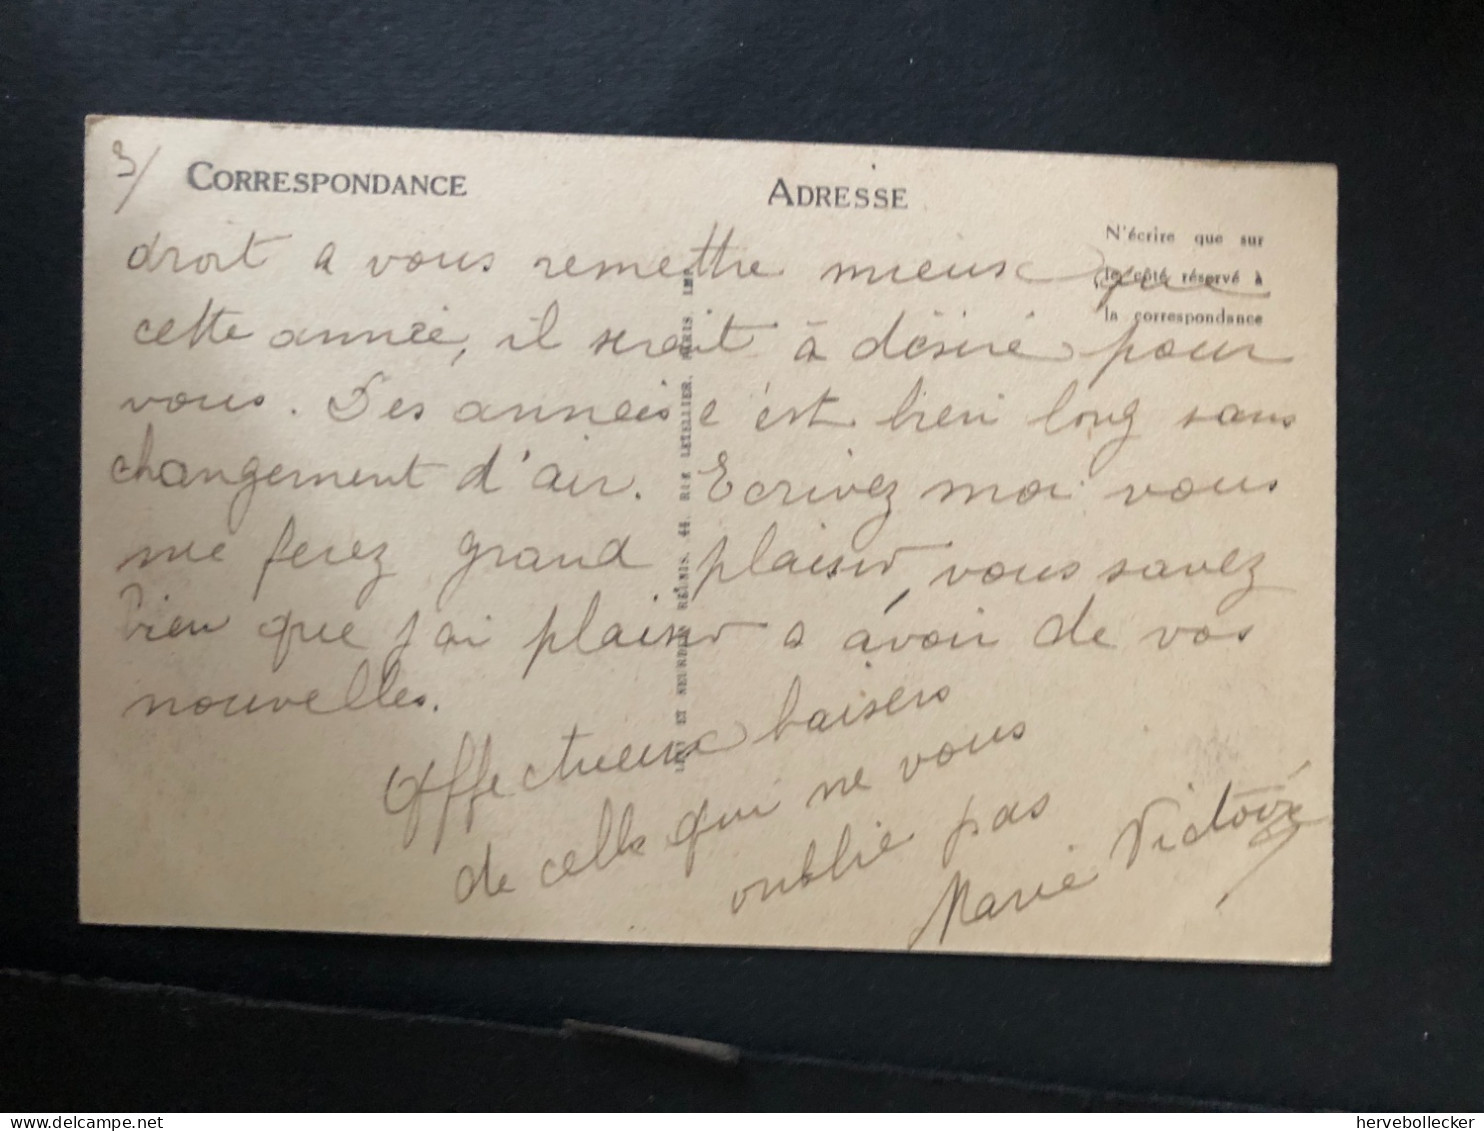 3/
CORRESPONDANCE
ADRESSE
N'écrire que sur
le côté réservé à
la correspondance
droit a vous remettre mieux que
cette année, il serait à désiré pour
vous. Des années c'est bien long sans
changement d'air. Ecrivez moi vous
me ferez grand plaisir, vous savez
bien que j'ai plaisir a avoir de vos
nouvelles.
Affectueux baisers
de celle qui ne vous
oublie pas
Marie Victoire
LEVY ET NEURDEIN RÉUNIS. 44. RUE LETELLIER. PARIS IMP.
delcampe.net
hervebollecker